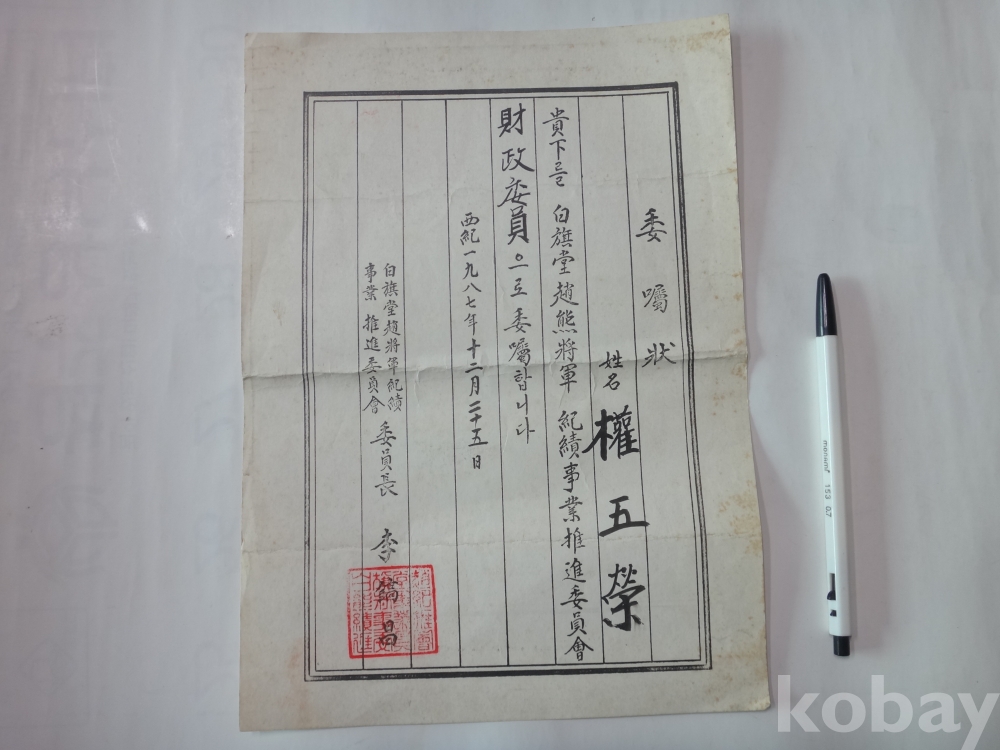 委嘱狀
姓名 權五榮
貴下를 白旗堂趙熊將軍 紀績事業推進委員會
財政委員으로 委嘱합니다
西紀一九八七年十二月二十五日
白旗堂趙將軍紀績
事業 推進委員會
委員長 李 昌
monami 153 0.7
kobay